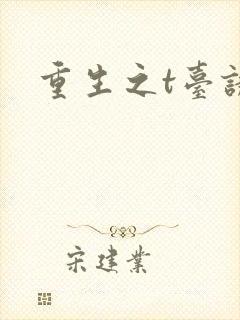 重生之t臺
宋建業